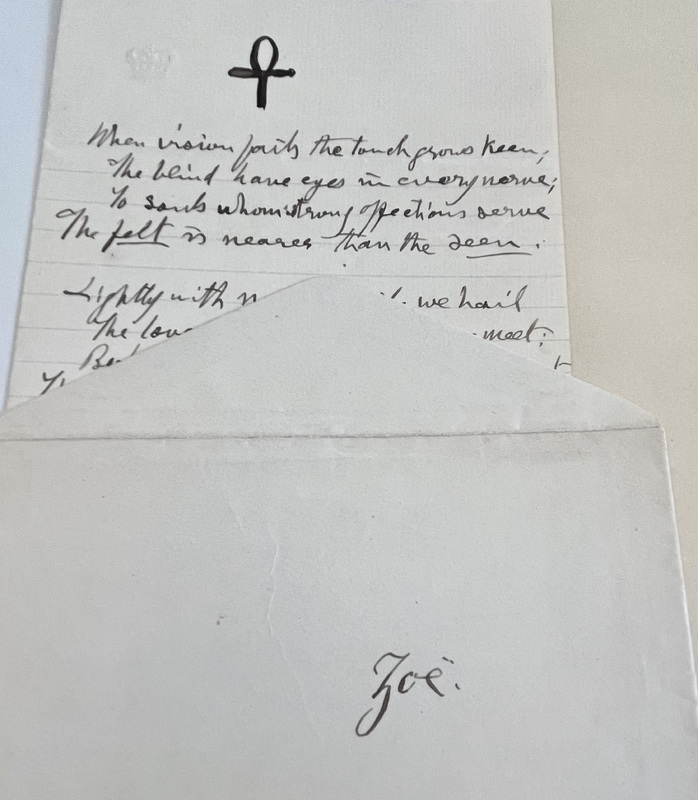 When vision fails the touch grows keen;
The blind have eyes in every nerve;
To souls whom strong affections serve
The felt is nearer than the seen.
Lightly with we hail
The meet;
Zoë.